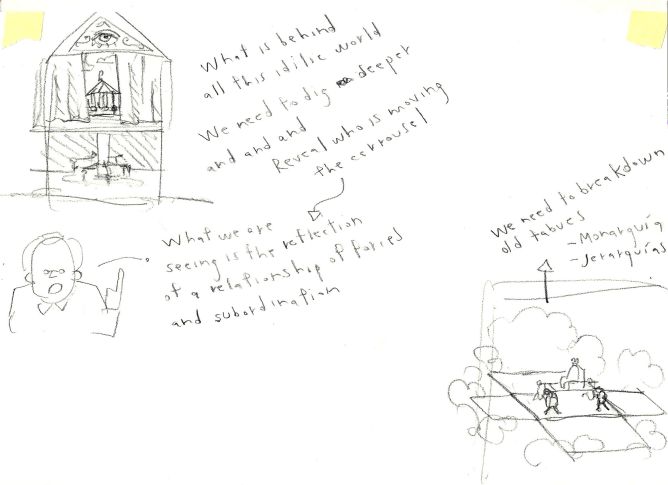 What is behind
all this idilic world
We need to dig deeper
and and and
Reveal who is moving
the carrousel
What we are
seeing is the reflection
of a relationship of forces
and subordination
We need to breakdown
old tabues
- Monarquía
- Jerarquías